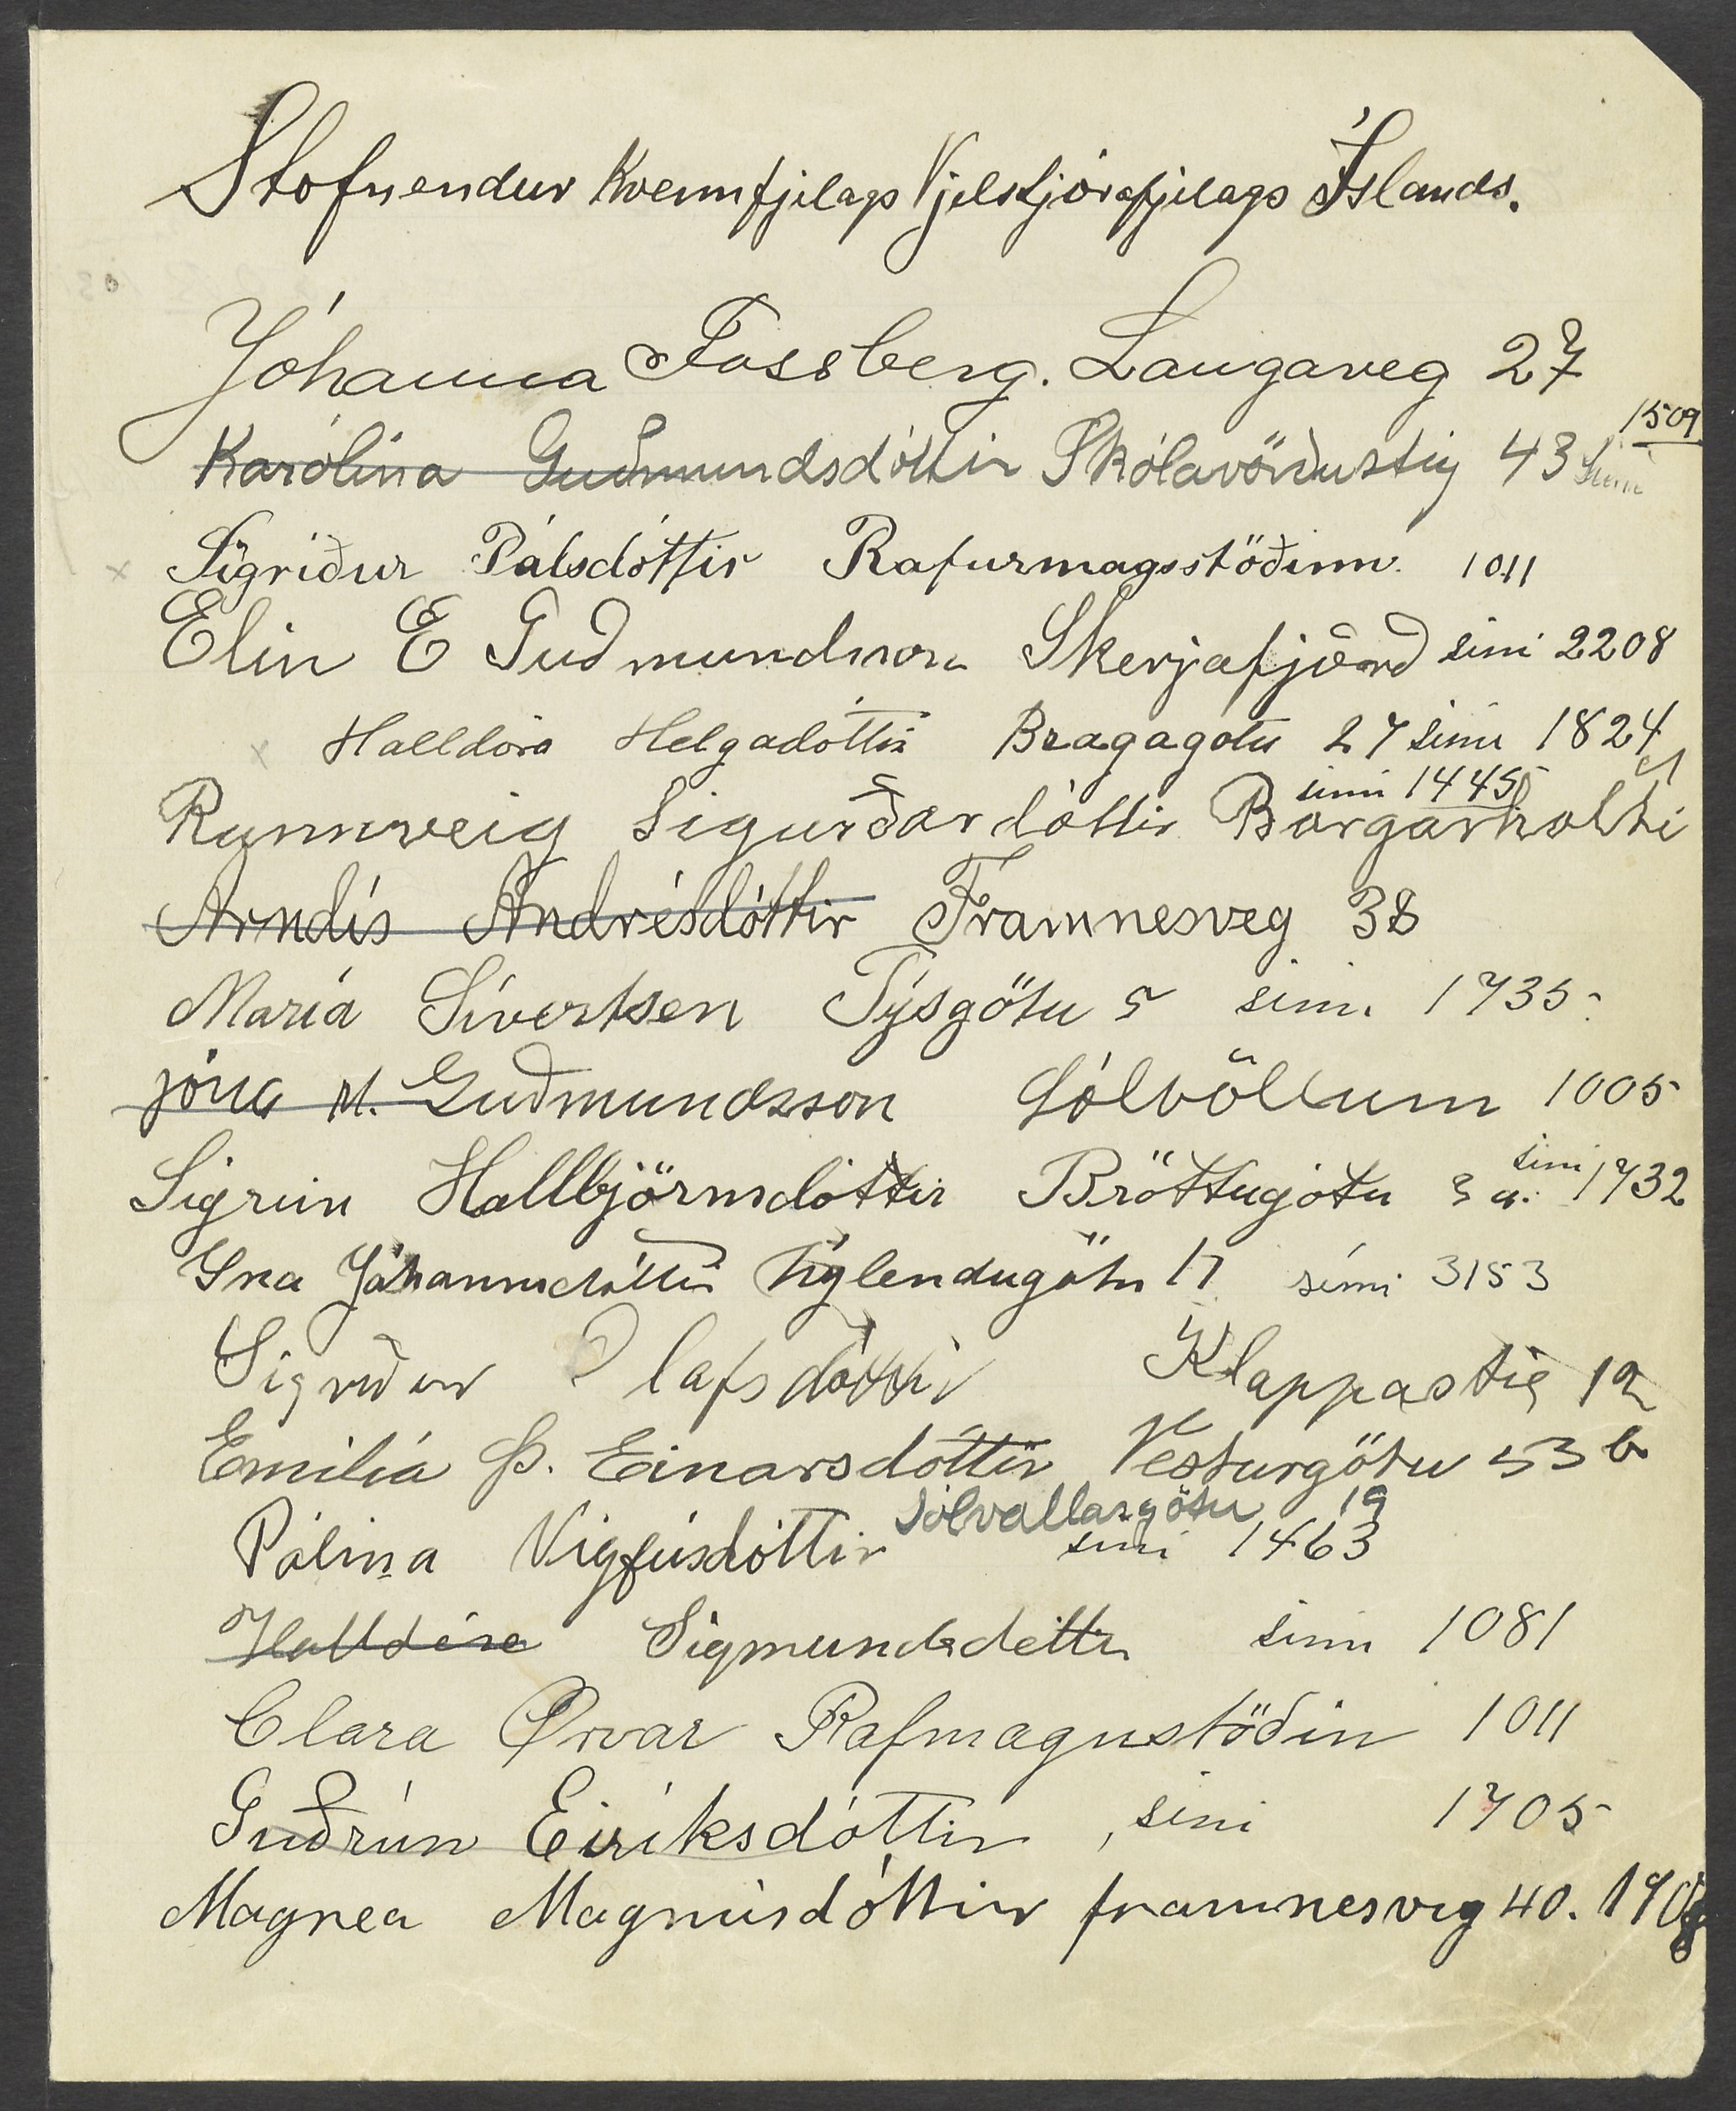 Stofnendur Kvennfjelags Vjelstjórafjelags Íslands.
Jóhanna Fossberg. Laugaveg 27
1509
Karólína Guðmundsdóttir Skólavörðustig 43 Simi
x Sigríður Pálsdóttir Rafurmagsstöðinn. 1011
Elin E Guðmundsson Skerjafjörð simi 2208
x Halldóra Helgadóttir Bragagötu 27 simi 1824
simi 1445
Rannveig Sigurðardóttir Borgarholti
Arndís Andrésdóttir Framnesveg 38
María Sívertsen Týsgötu 5 simi 1735
Jóna M. Guðmundsson Sólvöllum 1005
Sigrún Hallbjörnsdóttir Bröttugötu 3 a. simi 1732
Jóhannsdóttir Nýlendugötu 17 sími 3153
Sigríður Olafsdóttir Klappastig 12
Emilía Þ. Einarsdóttir Vesturgötu 53 b
Sólvallargötu 19
Pálína Vigfúsdóttir simi 1463
Halldóra Sigmundsdóttir simi 1081
Clara Ørvar Rafmagnstöðin 1011
Guðrún Eiríksdóttir, simi 1705
Magnea Magnúsdóttir framnesveg 40.